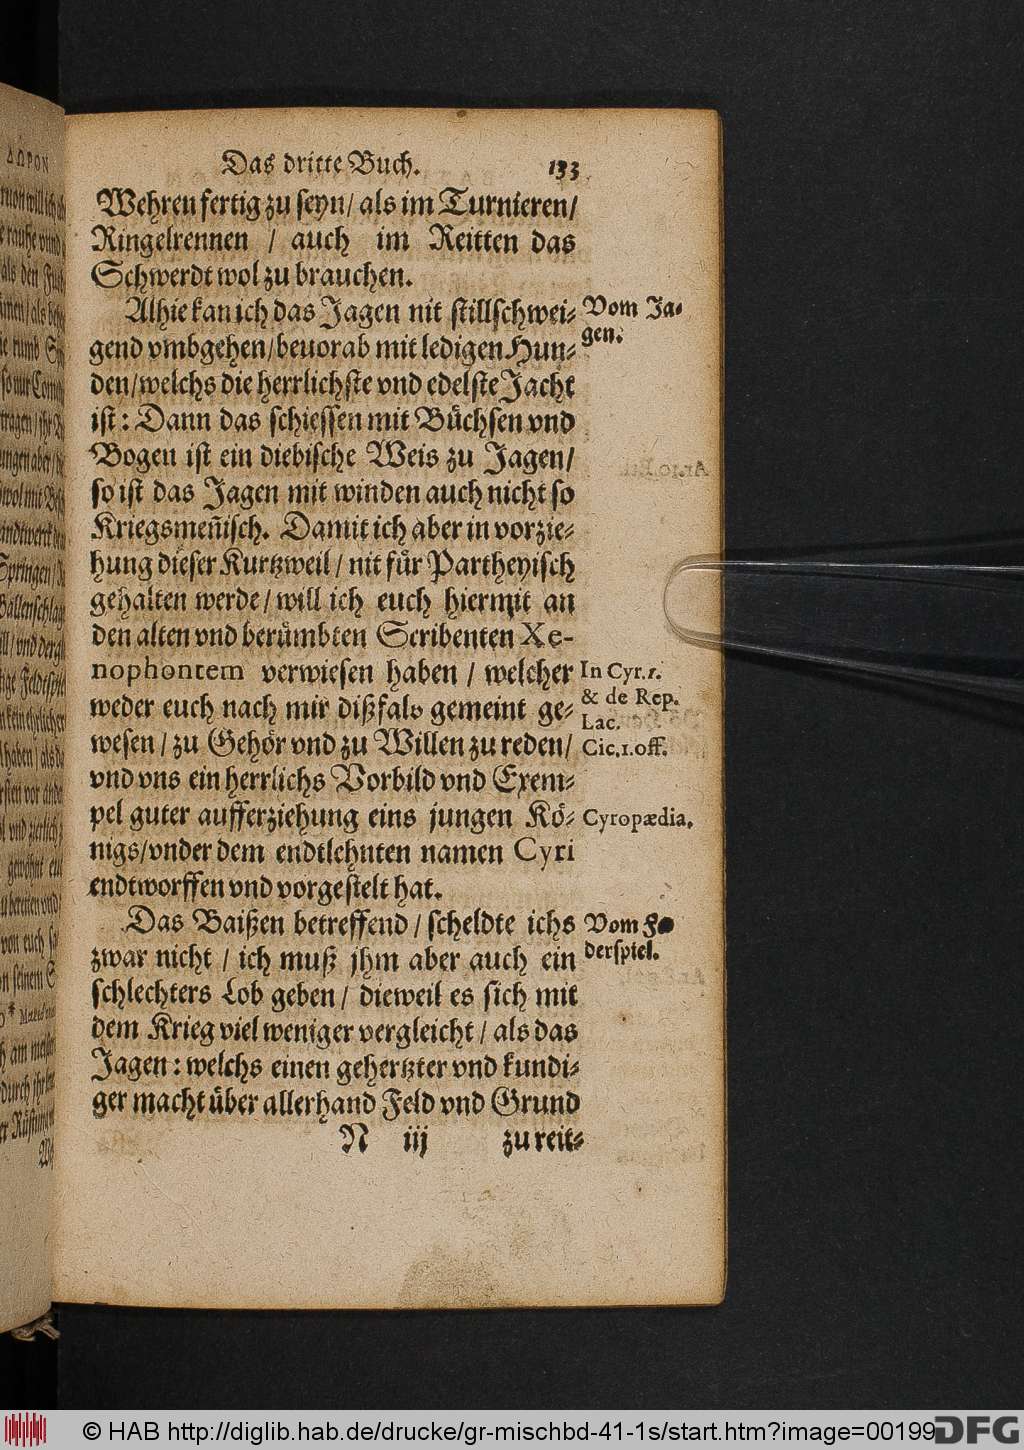 Das dritte Buch. 133
Wehren fertig zu seyn / als im Turnieren /
Ringelrennen / auch im Reitten das
Schwerdt wol zu brauchen.
Alhie kan ich das Jagen nit stillschwei-
Vom Ja-
gen.
gend vmbgehen / beuorab mit ledigen Hun-
den / welchs die herrlichste vnd edelste Jacht
ist: Dann das schiessen mit Büchsen vnd
Bogen ist ein diebische Weis zu Jagen /
so ist das Jagen mit winden auch nicht so
Kriegsmen̄isch. Damit ich aber in vorzie-
hung dieser Kurtzweil / nit für Partheyisch
gehalten werde / will ich euch hiermit an
den alten vnd berümbten Scribenten Xe-
nophontem verwiesen haben / welcher
In Cyr. 1.
& de Rep.
Lac.
Cic. 1. off.
weder euch nach mir dißfals gemeint ge-
wesen / zu Gehör vnd zu Willen zu reden /
vnd vns ein herrlichs Vorbild vnd Exem-
pel guter aufferziehung eins jungen Kö-
Cyropædia,
nigs / vnder dem endtlehnten namen Cyri
endtworffen vnd vorgestelt hat.
Das Baißen betreffend / scheldte ichs
Vom Fe-
derspiel.
zwar nicht / ich muß jhm aber auch ein
schlechters Lob geben / dieweil es sich mit
dem Krieg viel weniger vergleicht / als das
Jagen: welchs einen gehertzter vnd kundi-
ger macht über allerhand Feld vnd Grund
N iij zu reit-
© HAB http://diglib.hab.de/drucke/gr-mischbd-41-1s/start.htm?image=00199
DFG